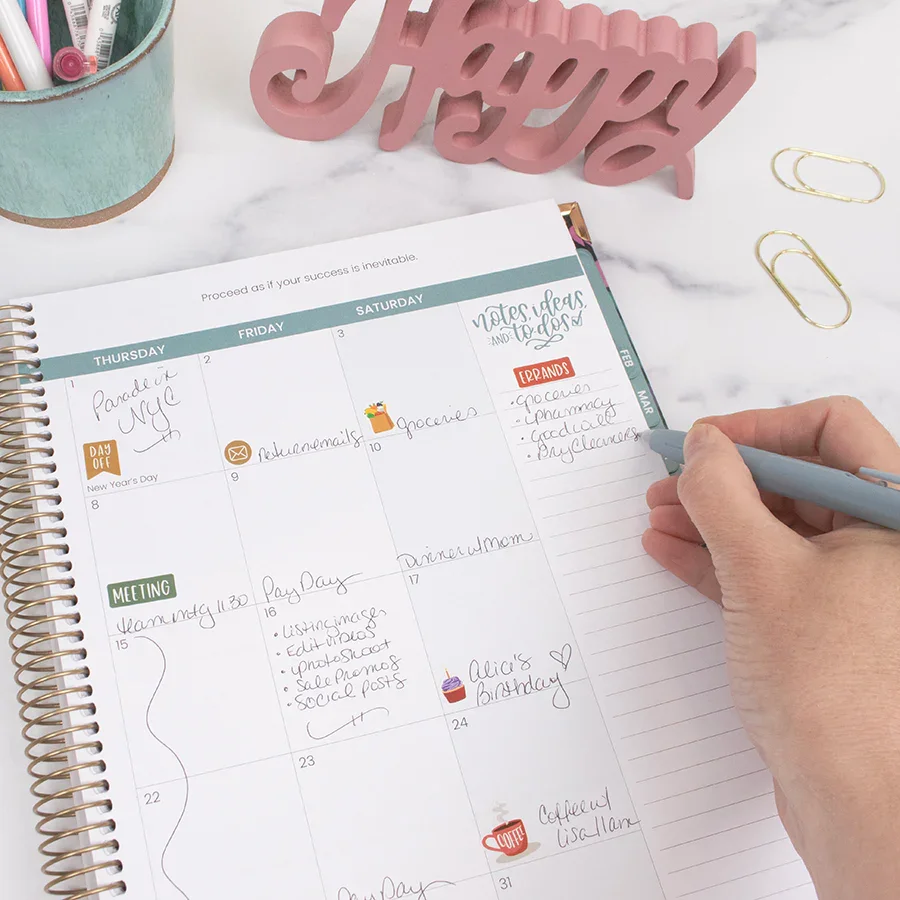 Happy
Proceed as if your success is inevitable.
THURSDAY
FRIDAY
SATURDAY
notes, ideas,
AND to dos
FEB
MAR
ERRANDS
• groceries
• pharmacy
• Goodwill
• Dry Cleaners
1
Parade in
NYC
DAY
OFF
New Year's Day
2
return emails
3
groceries
8
MEETING
team mtg 11:30
9
Pay Day
10
Dinner w/ Mom
15
16
• Listing images
• Edit videos
• photo shoot
• Sale Promos
• Social posts
17
Alice's
Birthday
22
23
Pay Day
24
COFFEE
Coffee w/
Lisa 11am
31